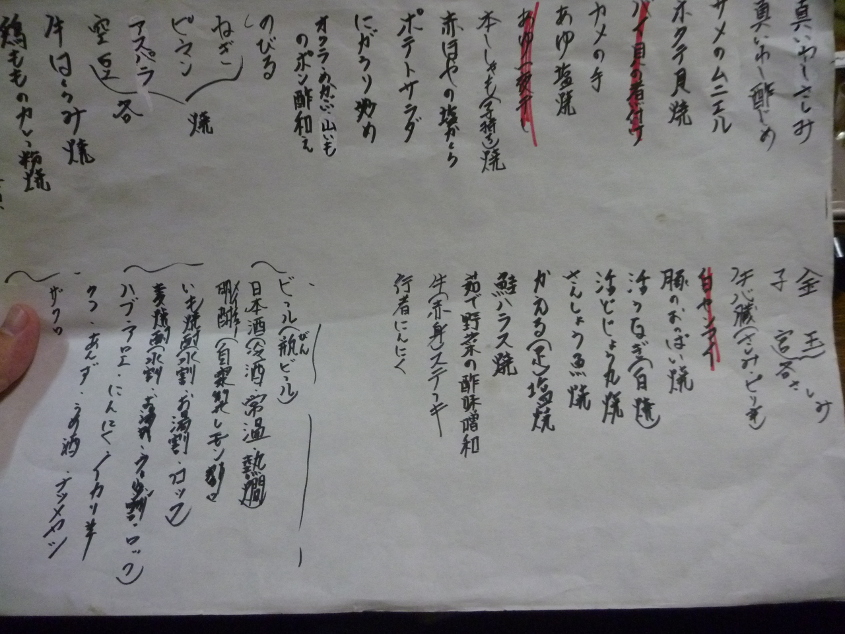 真いわしさしみ
真いわし酢じめ
サメのムニエル
ホタテ貝焼
バイ貝の煮付け
カメの手
あゆ塩焼
あゆ一夜干し
本ししゃも(子持ち)焼
赤ほやの塩から
ポテトサラダ
にがうり炒め
オクラ・めかぶ・山いも
のポン酢和え
のびる
ねぎ
ピーマン
アスパラ
空豆
各
焼
牛はらみ焼
鶏もものカレー粉焼
金玉
子宮
各さしみ
牛心臓(さしみ・ピリ辛)
豚のおっぱい焼
活うなぎ(白焼)
活どじょう丸焼
さんしょう魚焼
かえる(足)塩焼
鮭ハラス焼
茹で野菜の酢味噌和
牛(赤身)ステーキ
行者にんにく
ビール(瓶ビール)
びん
日本酒(冷酒・常温・熱燗)
(自家製レモン割)
いも焼酎(水割・お湯割・ロック)
麦焼酎(水割・お湯割・ウーロン割・ロック)
ハブ・アロエ・にんにく・イカリ草
うめ酒・ナツメヤシ
ザクロ